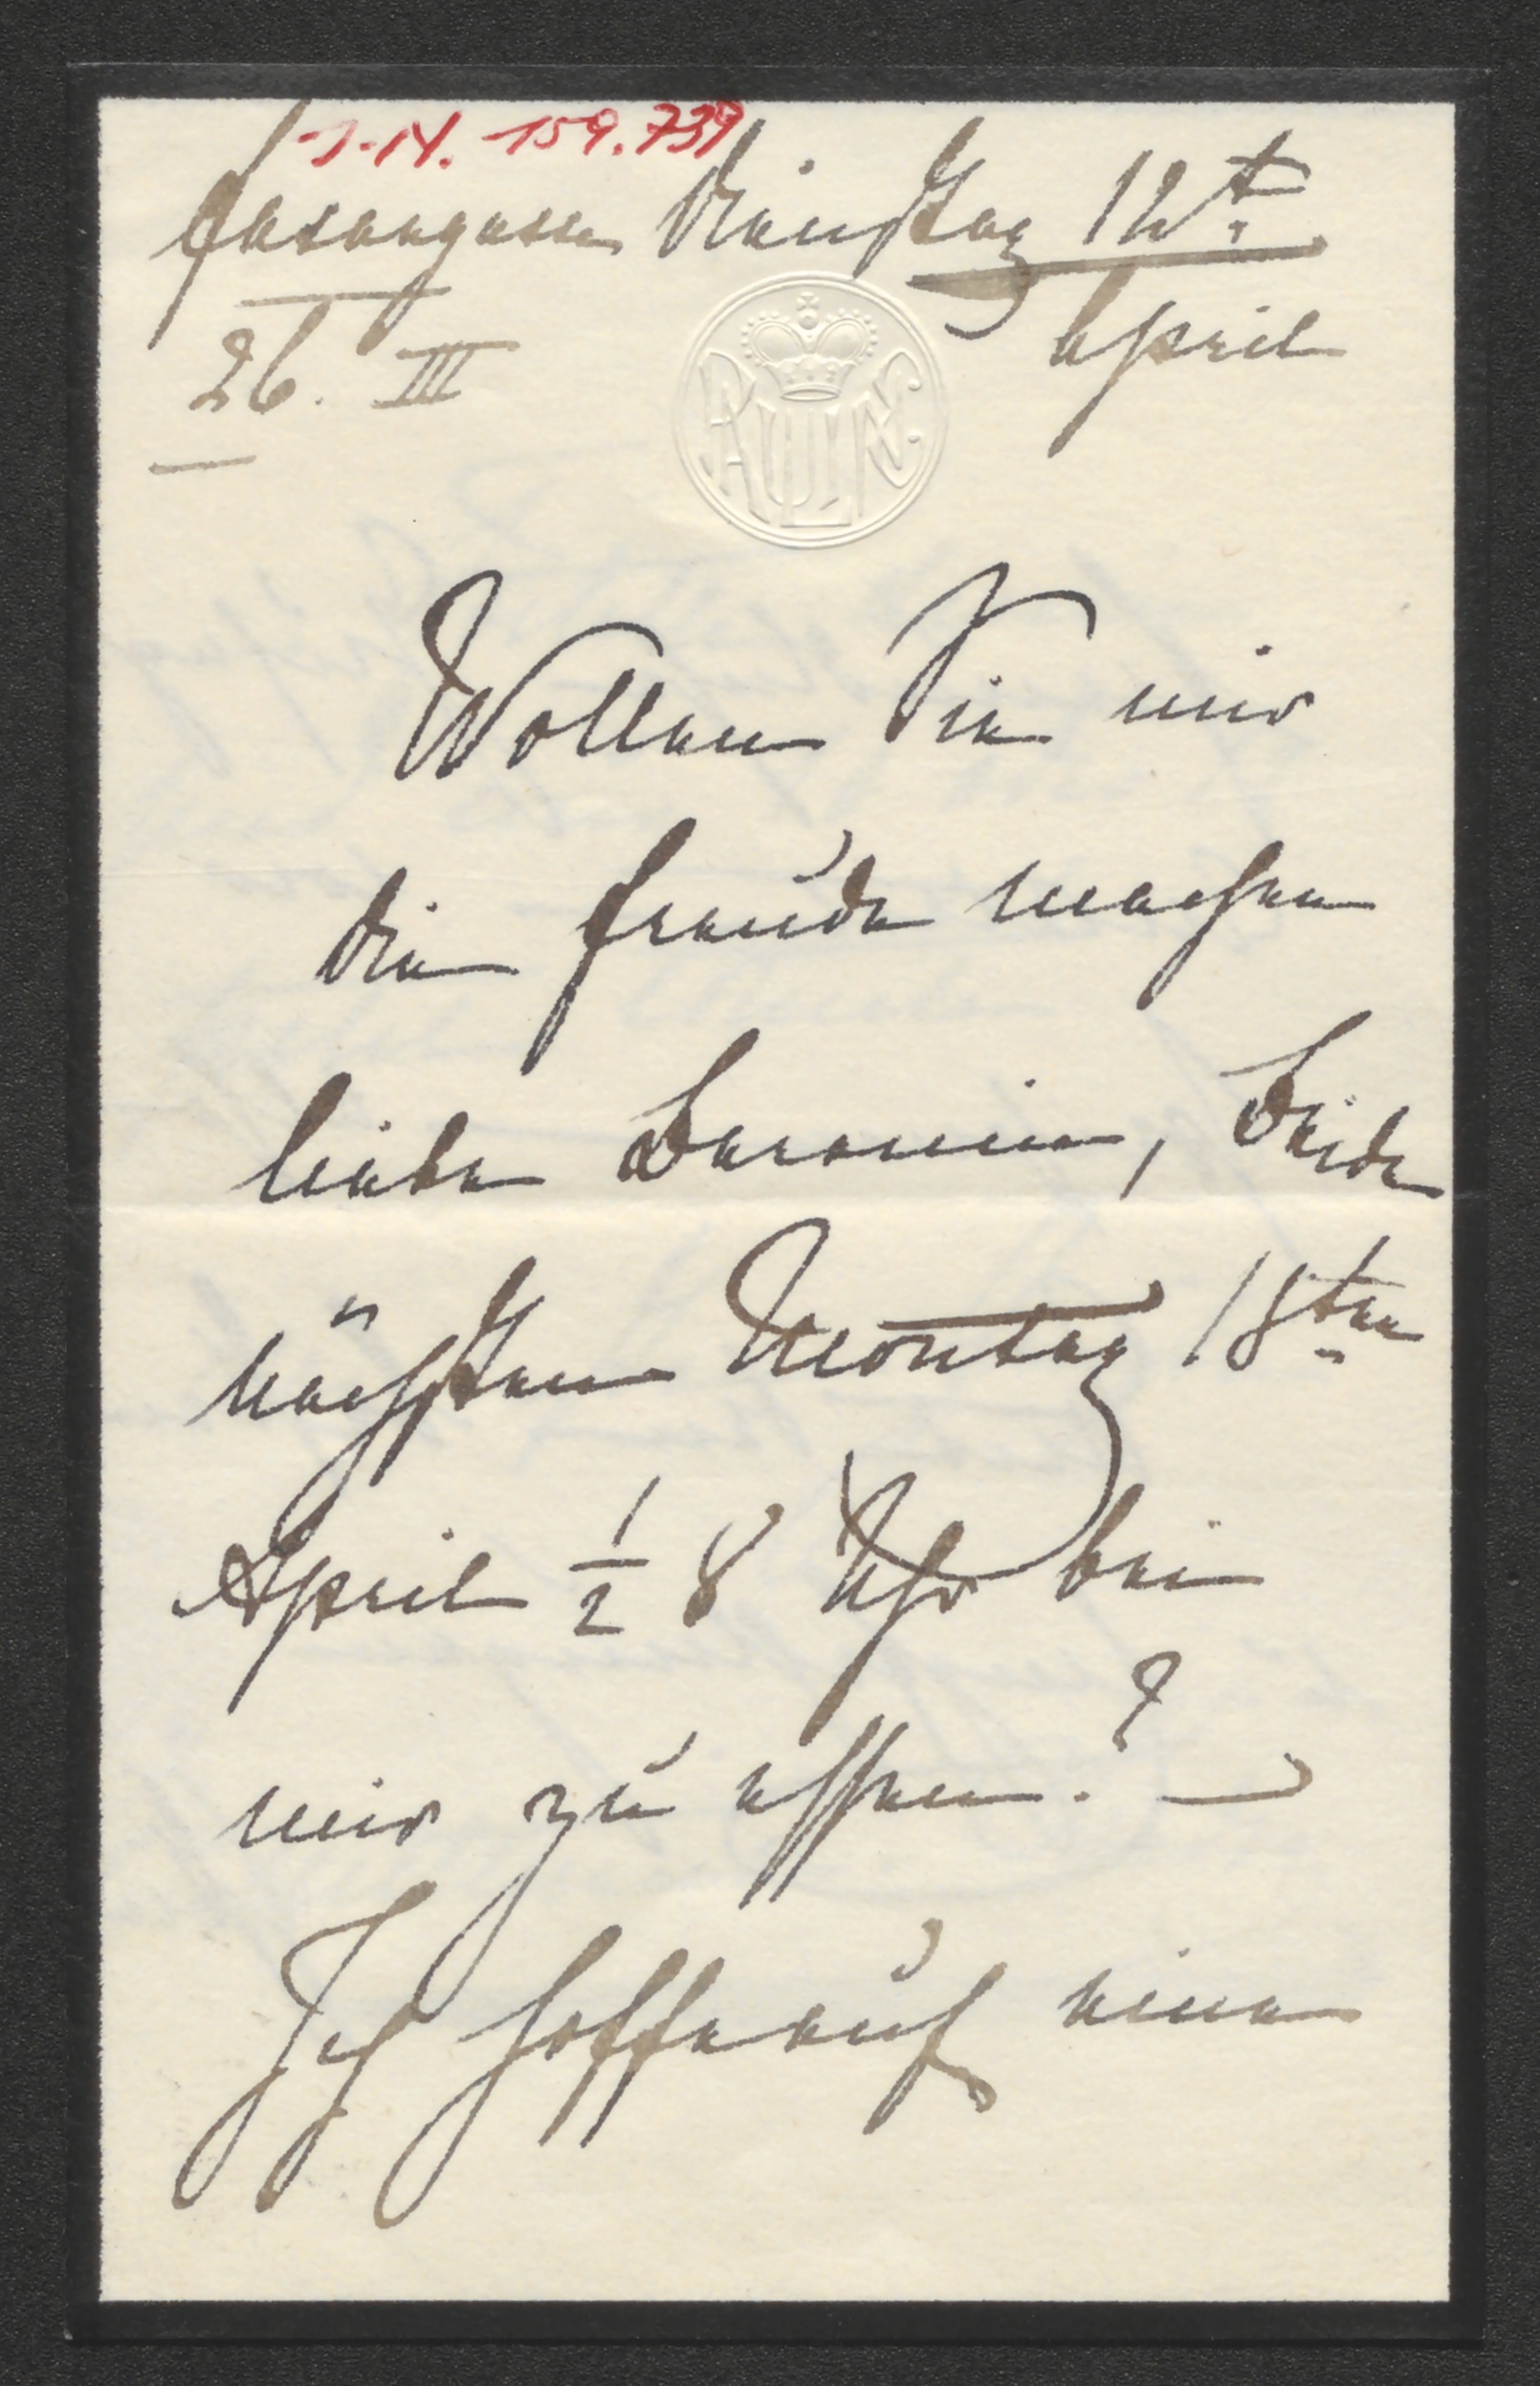 I.N. 159.739
Fasangasse Dienstag 12t.
April
26. III
Wollen Sie mir
die Freude machen
liebe Baronin, Beide
nächsten Montag 18ten
April ½ 8 Uhr bei
mir zu essen? —
Ich hoffe auf eine